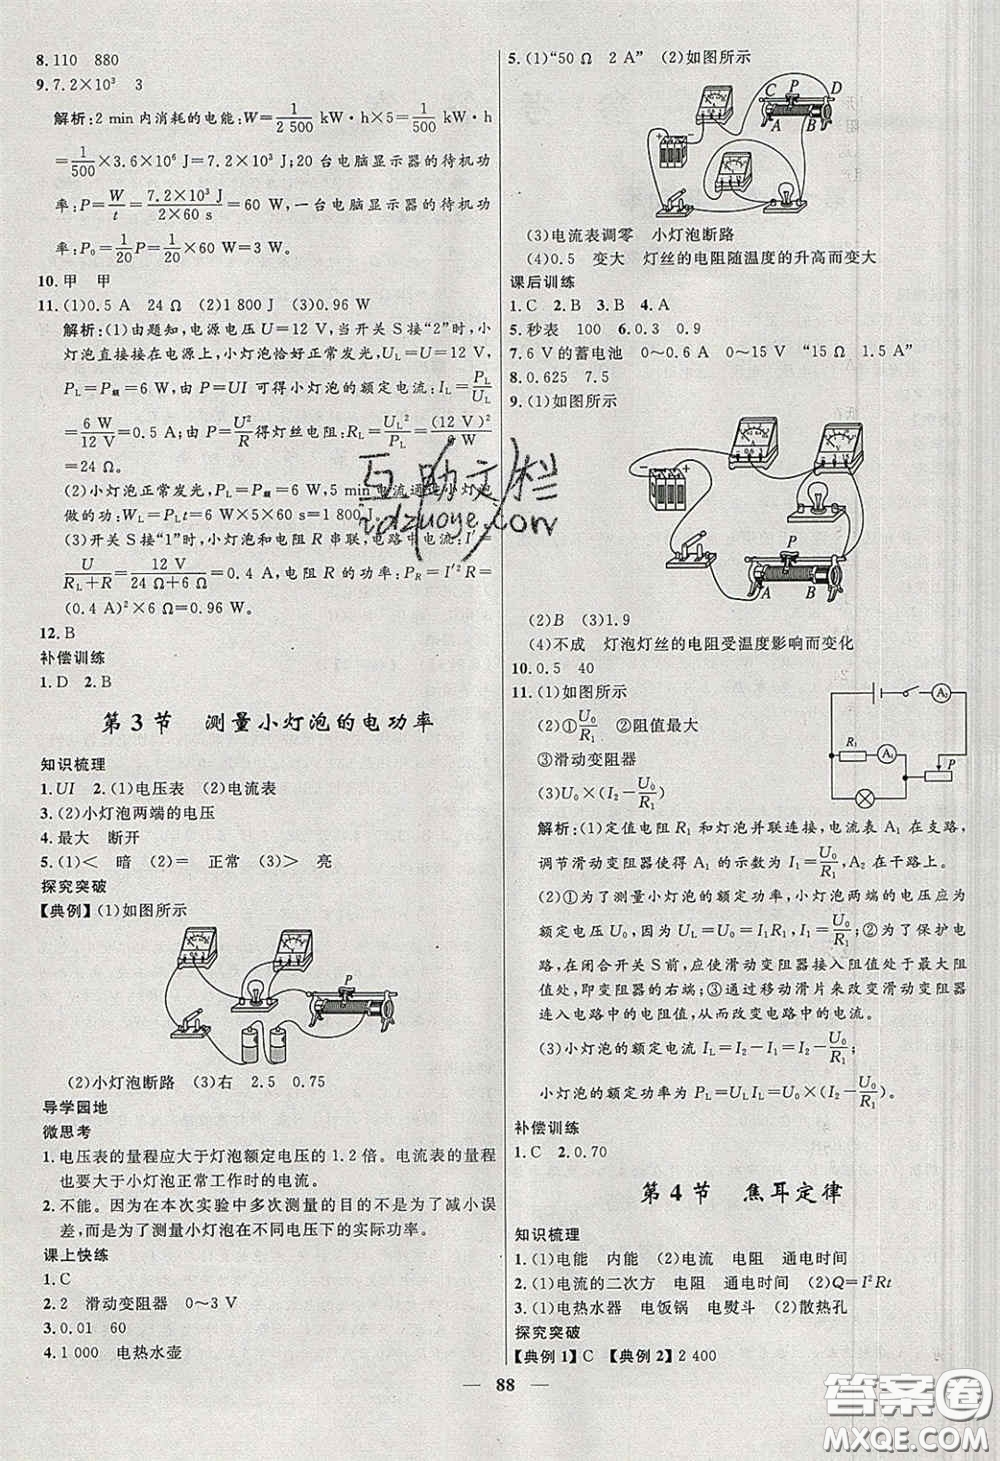 8.110　880
9.7.2×10³　3
解析:2 min内消耗的电能:W=1/2 500 kW·h×5=1/500 kW·h
=1/500×3.6×10⁶ J=7.2×10³ J;20台电脑显示器的待机功
率:P=W/t=7.2×10³ J/2×60 s=60 W,一台电脑显示器的待机功
率:P₀=1/20P=1/20×60 W=3 W。
10.甲　甲
11.(1)0.5 A　24 Ω　(2)1 800 J　(3)0.96 W
解析:(1)由题知,电源电压U=12 V,当开关S接“2”时,小
灯泡直接接在电源上,小灯泡恰好正常发光,U_L=U=12 V,
P_L=P_额=6 W,由P=UI可得小灯泡的额定电流:I_L=P_L/U_L
=6 W/12 V=0.5 A;由P=U²/R得灯丝电阻:R_L=U_L²/P_L=(12 V)²/6 W
=24 Ω。
(2)小灯泡正常发光,P_L=6 W,5 min电流通过小灯泡
做的功:W_L=P_Lt=6 W×5×60 s=1 800 J。
(3)开关S接“1”时,小灯泡和电阻R串联,电路中电流:I′=
U/R_L+R=12 V/24 Ω+6 Ω=0.4 A,电阻R的功率:P_R=I′²R=
(0.4 A)²×6 Ω=0.96 W。
12.B
补偿训练
1.D　2.B
第3节　测量小灯泡的电功率
知识梳理
1.UI　2.(1)电压表　(2)电流表
3.(2)小灯泡两端的电压
4.最大　断开
5.(1)<　暗　(2)=　正常　(3)>　亮
探究突破
【典例】(1)如图所示
P
(2)小灯泡断路　(3)右　2.5　0.75
导学园地
微思考
1.电压表的量程应大于灯泡额定电压的1.2倍。电流表的量程
也要大于小灯泡正常工作时的电流。
2.不能。因为在本次实验中多次测量的目的不是为了减小误
差,而是为了测量小灯泡在不同电压下的实际功率。
课上快练
1.C
2.2　滑动变阻器　0～3 V
3.0.01　60
4.1 000　电热水壶
5.(1)“50 Ω　2 A”　(2)如图所示
C P D
A B
(3)电流表调零　小灯泡断路
(4)0.5　变大　灯丝的电阻随温度的升高而变大
课后训练
1.C　2.B　3.B　4.A
5.秒表　100　6.0.3　0.9
7.6 V的蓄电池　0～0.6 A　0～15 V　“15 Ω　1.5 A”
8.0.625　7.5
9.(1)如图所示
P
A B
(2)B　(3)1.9
(4)不成　灯泡灯丝的电阻受温度影响而变化
10.0.5　40
11.(1)如图所示
A₂
(2)①U₀/R₁　②阻值最大
R₁ A₁ P
③滑动变阻器
(3)U₀×(I₂-U₀/R₁)
解析:(1)定值电阻R₁和灯泡并联连接,电流表A₁在支路,
调节滑动变阻器使得A₁的示数为I₁=U₀/R₁,A₂在干路上。
(2)①为了测量小灯泡的额定功率,小灯泡两端的电压应为
额定电压U₀,因为U_L=U₀=I₁R₁,I₁=U₀/R₁;②为了保护电
路,在闭合开关S前,应使滑动变阻器接入阻值处于最大阻
值处,即变阻器的右端;③通过移动滑片来改变滑动变阻器
连入电路中的电阻值,从而改变电路中的电流。
(3)小灯泡的额定电流I_L=I₂-I₁=I₂-U₀/R₁;
小灯泡的额定功率为P_L=U_LI_L=U₀×(I₂-U₀/R₁)。
补偿训练
1.C　2.0.70
第4节　焦耳定律
知识梳理
1.(1)电能　内能　(2)电流　电阻　通电时间
2.(1)电流的二次方　电阻　通电时间　(2)Q=I²Rt
3.(1)电热水器　电饭锅　电熨斗　(2)散热孔
探究突破
【典例1】C　【典例2】2 400
88
互助文栏
idzuoye.com
答案圈
MXQE.COM